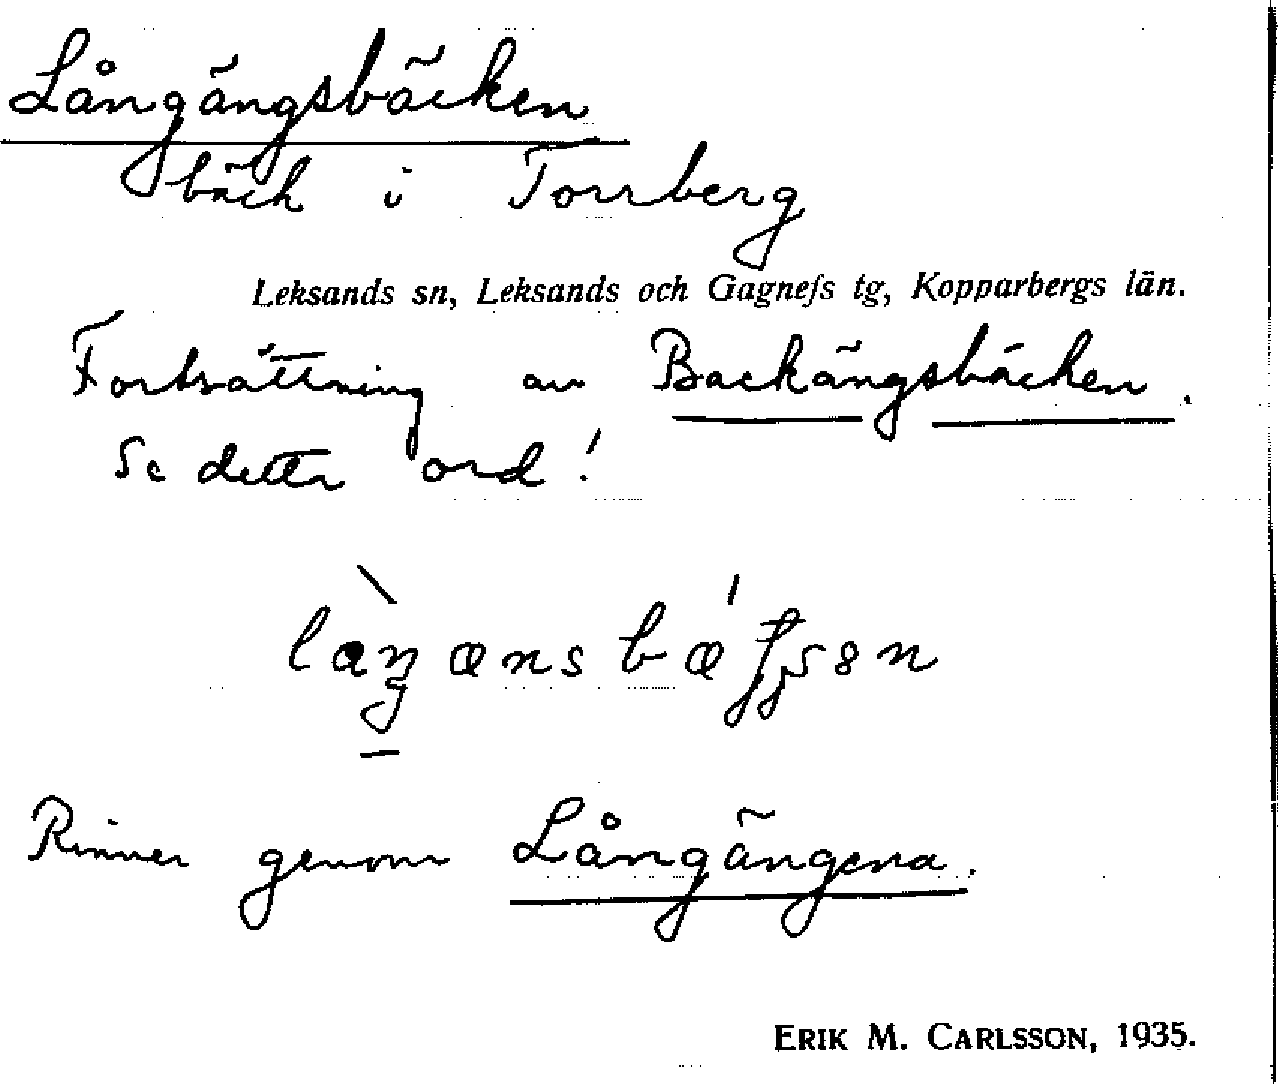 Långängsbäcken
bäck i Torrberg
Leksands sn, Leksands och Gagnefs tg, Kopparbergs län.
Fortsättning av Backängsbäcken.
Se detta ord!
Rinner genom Långängena.
ERIK M. CARLSSON, 1935.